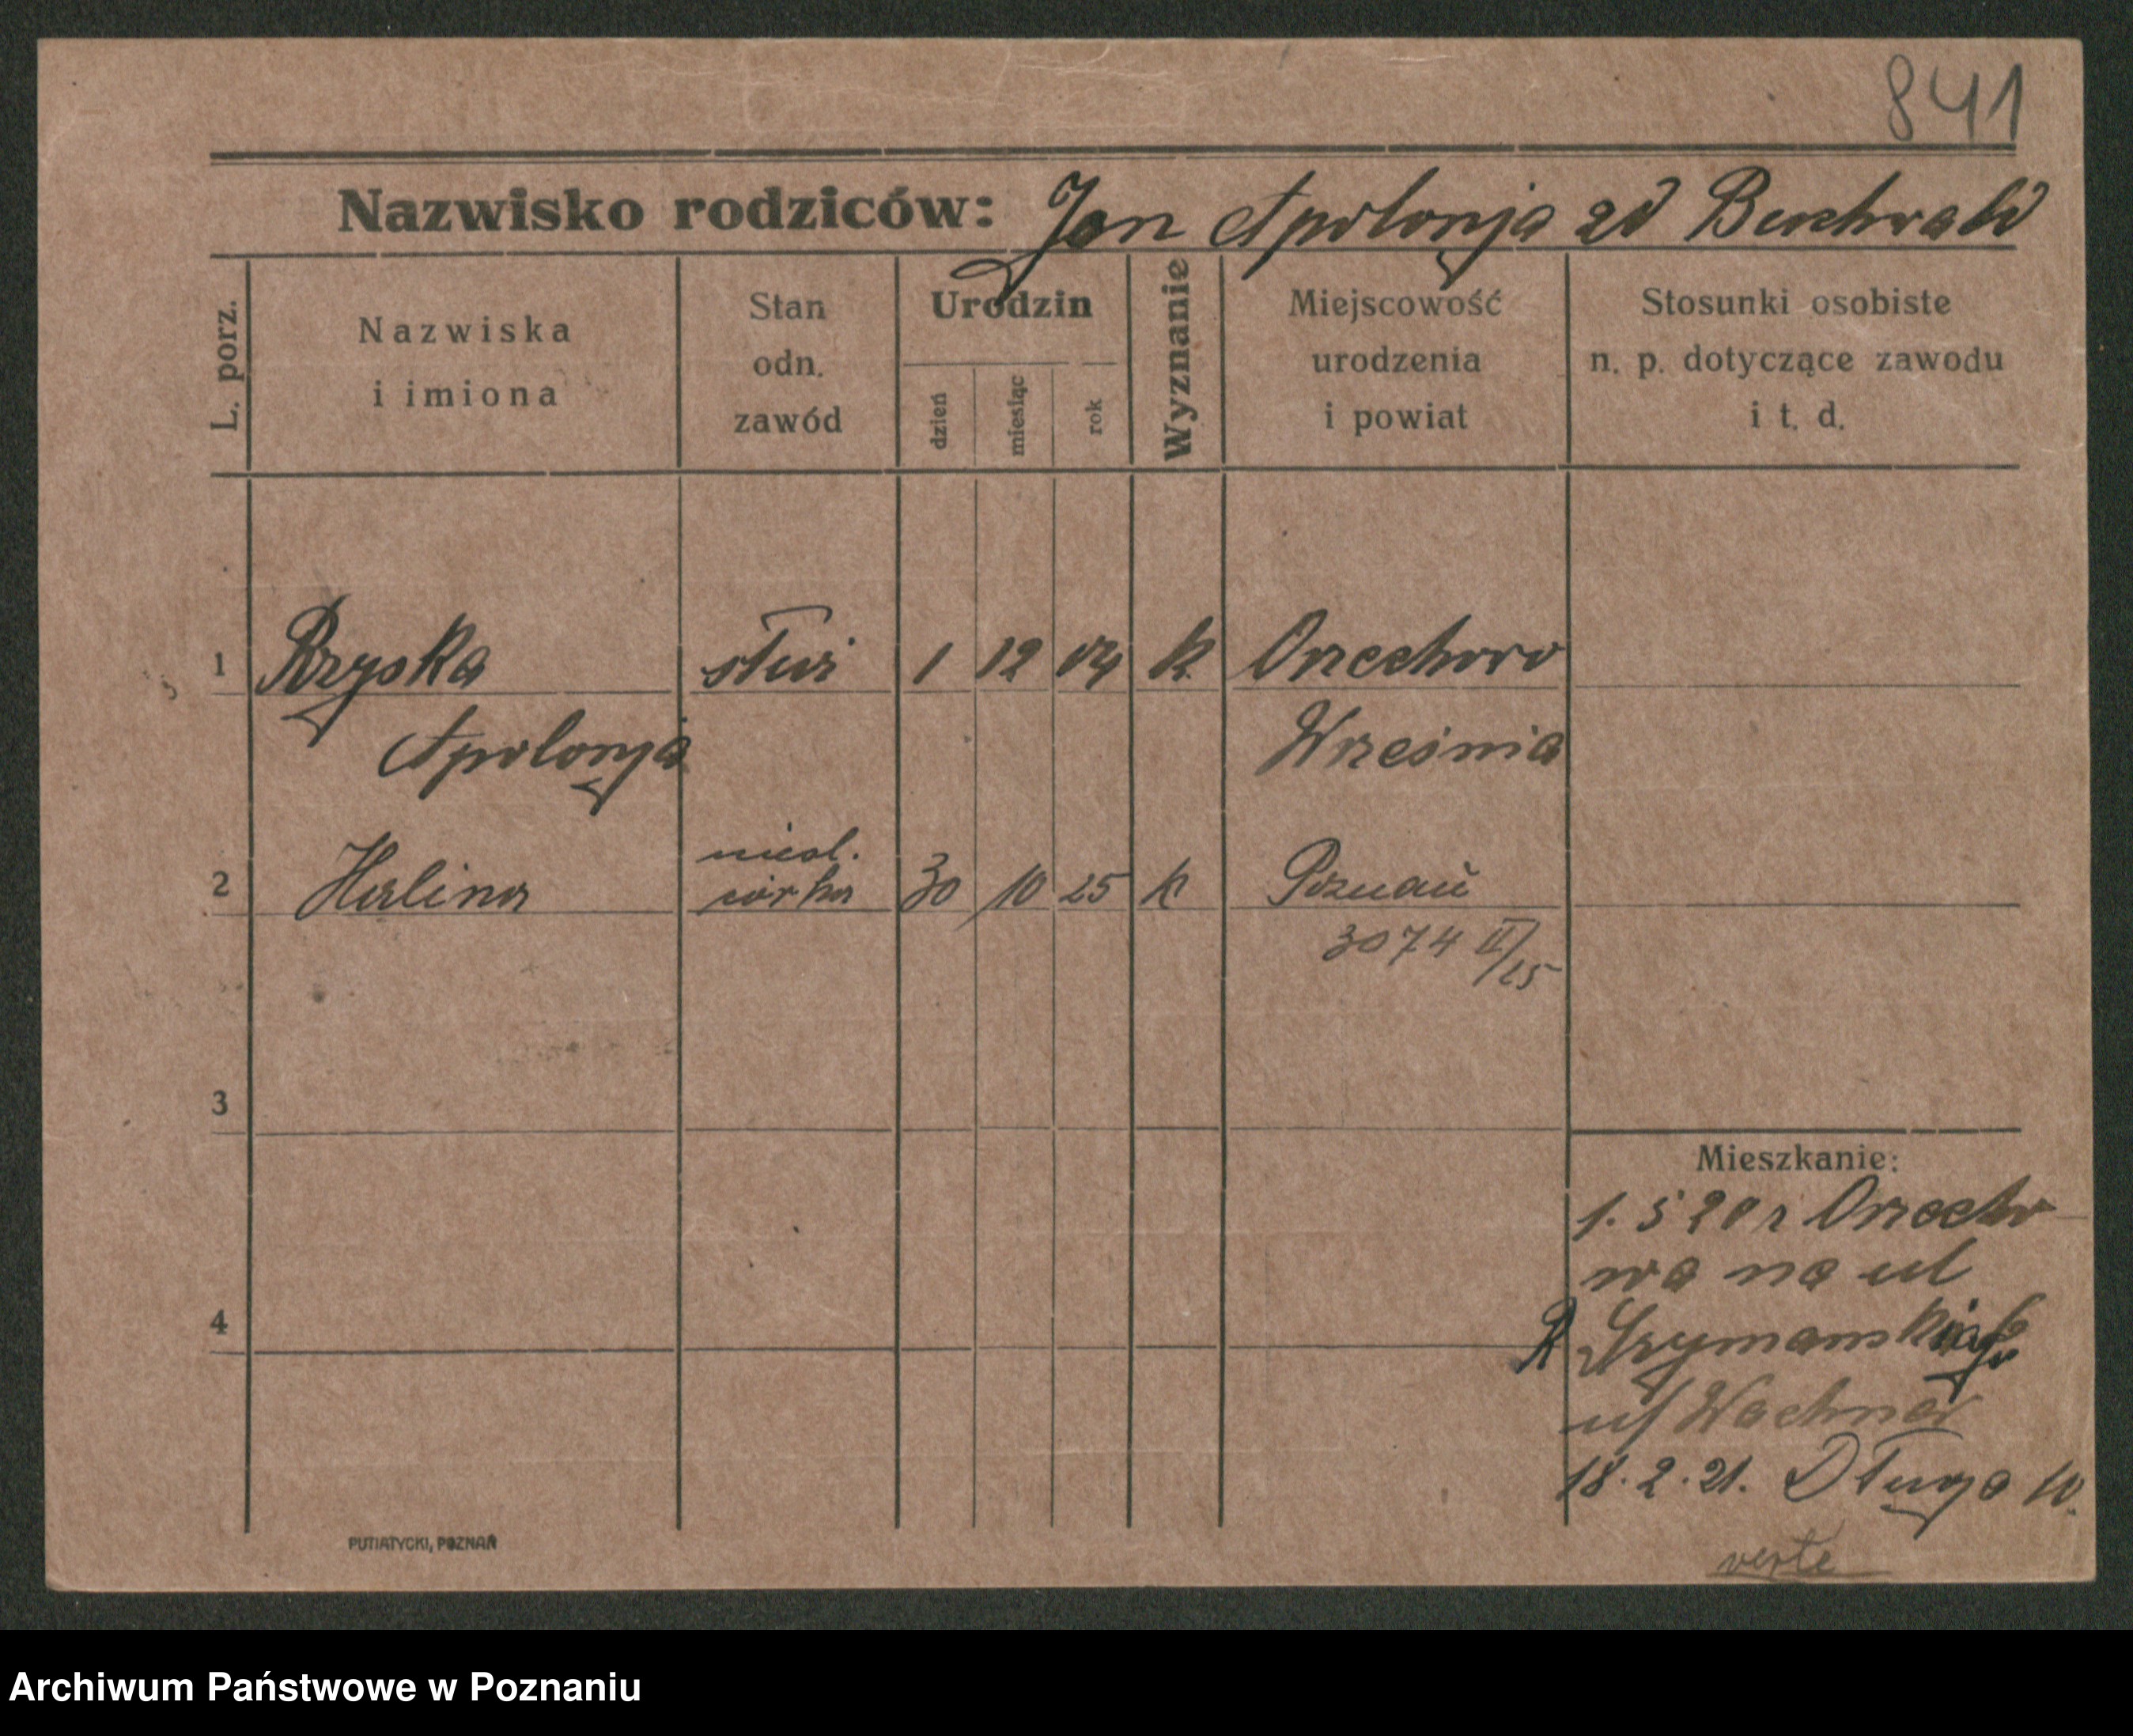 841
Nazwisko rodziców: Jan Apolonja zd Buchwald
L. porz.
Nazwiska
i imiona
Stan
odn.
zawód
Urodzin
dzień
miesiąc
rok
Wyznanie
Miejscowość
urodzenia
i powiat
Stosunki osobiste
n. p. dotyczące zawodu
i t. d.
1 Rzyska służ 1 12 04 k Orzechowo
Apolonja Września
nieśl.
2 Halina córka 30 10 25 k Poznań
3074 II/25
3
Mieszkanie:
1.5 20 z Orzecho
wa na ul
4
R Szymańskiego
Wachner
18.2.21. Długa 10.
verte
PUTIATYCKI, POZNAŃ
Archiwum Państwowe w Poznaniu